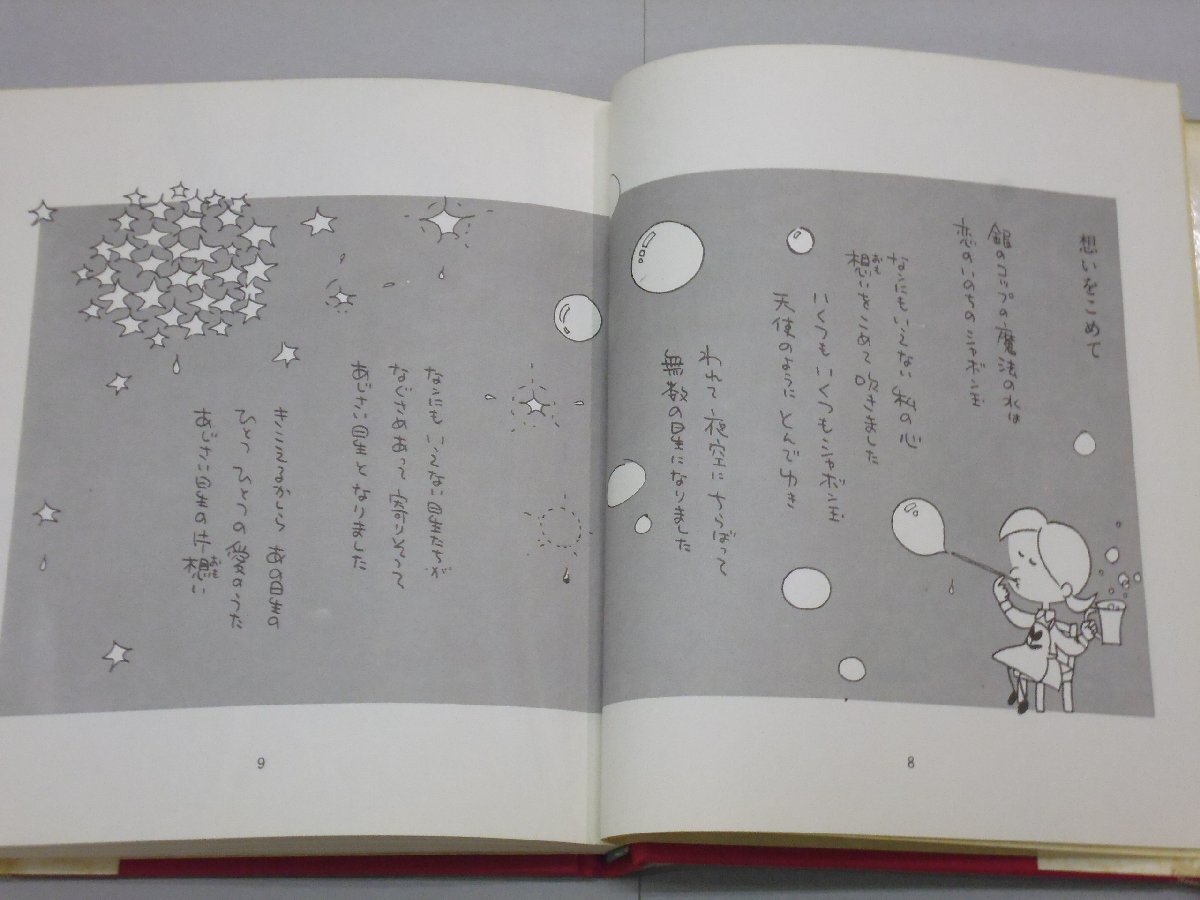 想いをこめて
銀のコップの魔法の水は
恋のいのちのシャボン玉
なにもいえない私の心
想いをこめて吹きました
いくつもいくつもシャボン玉
天使のようにとんでゆき
われて夜空にちらばって
無数の星になりました
8
なにもいえない星たちが
なぐさめあって寄りそって
あじさい星となりました
きこえるかしらあの星の
ひとつひとつの愛のうた
あじさい星の片想い
9